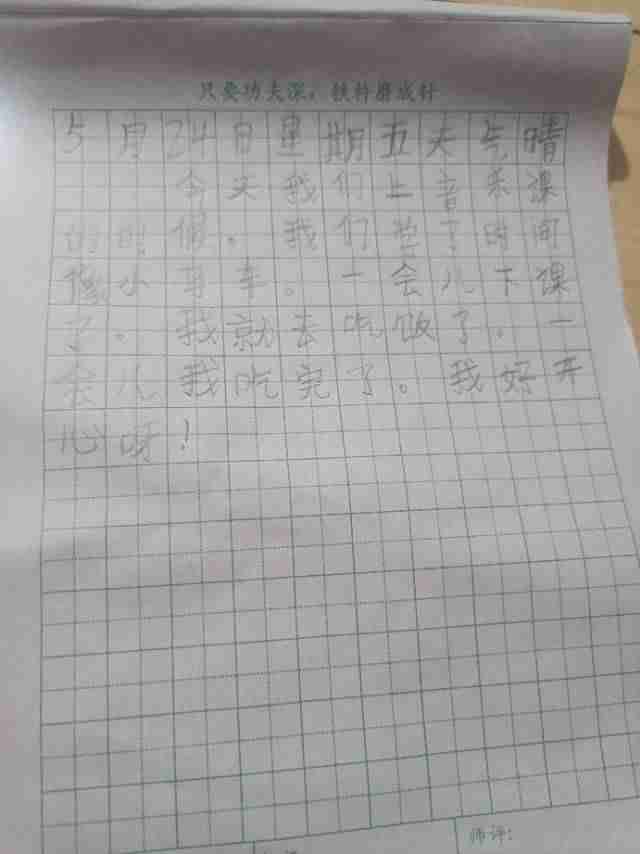 只要功夫深，铁杵磨成针
5月24日星期五天气晴
今天我们上音乐课
的时候。我们学了时间
像小马车。一会儿下课
了。我就去吃饭了。一
会儿我吃完了。我好开
心呀！
师评：